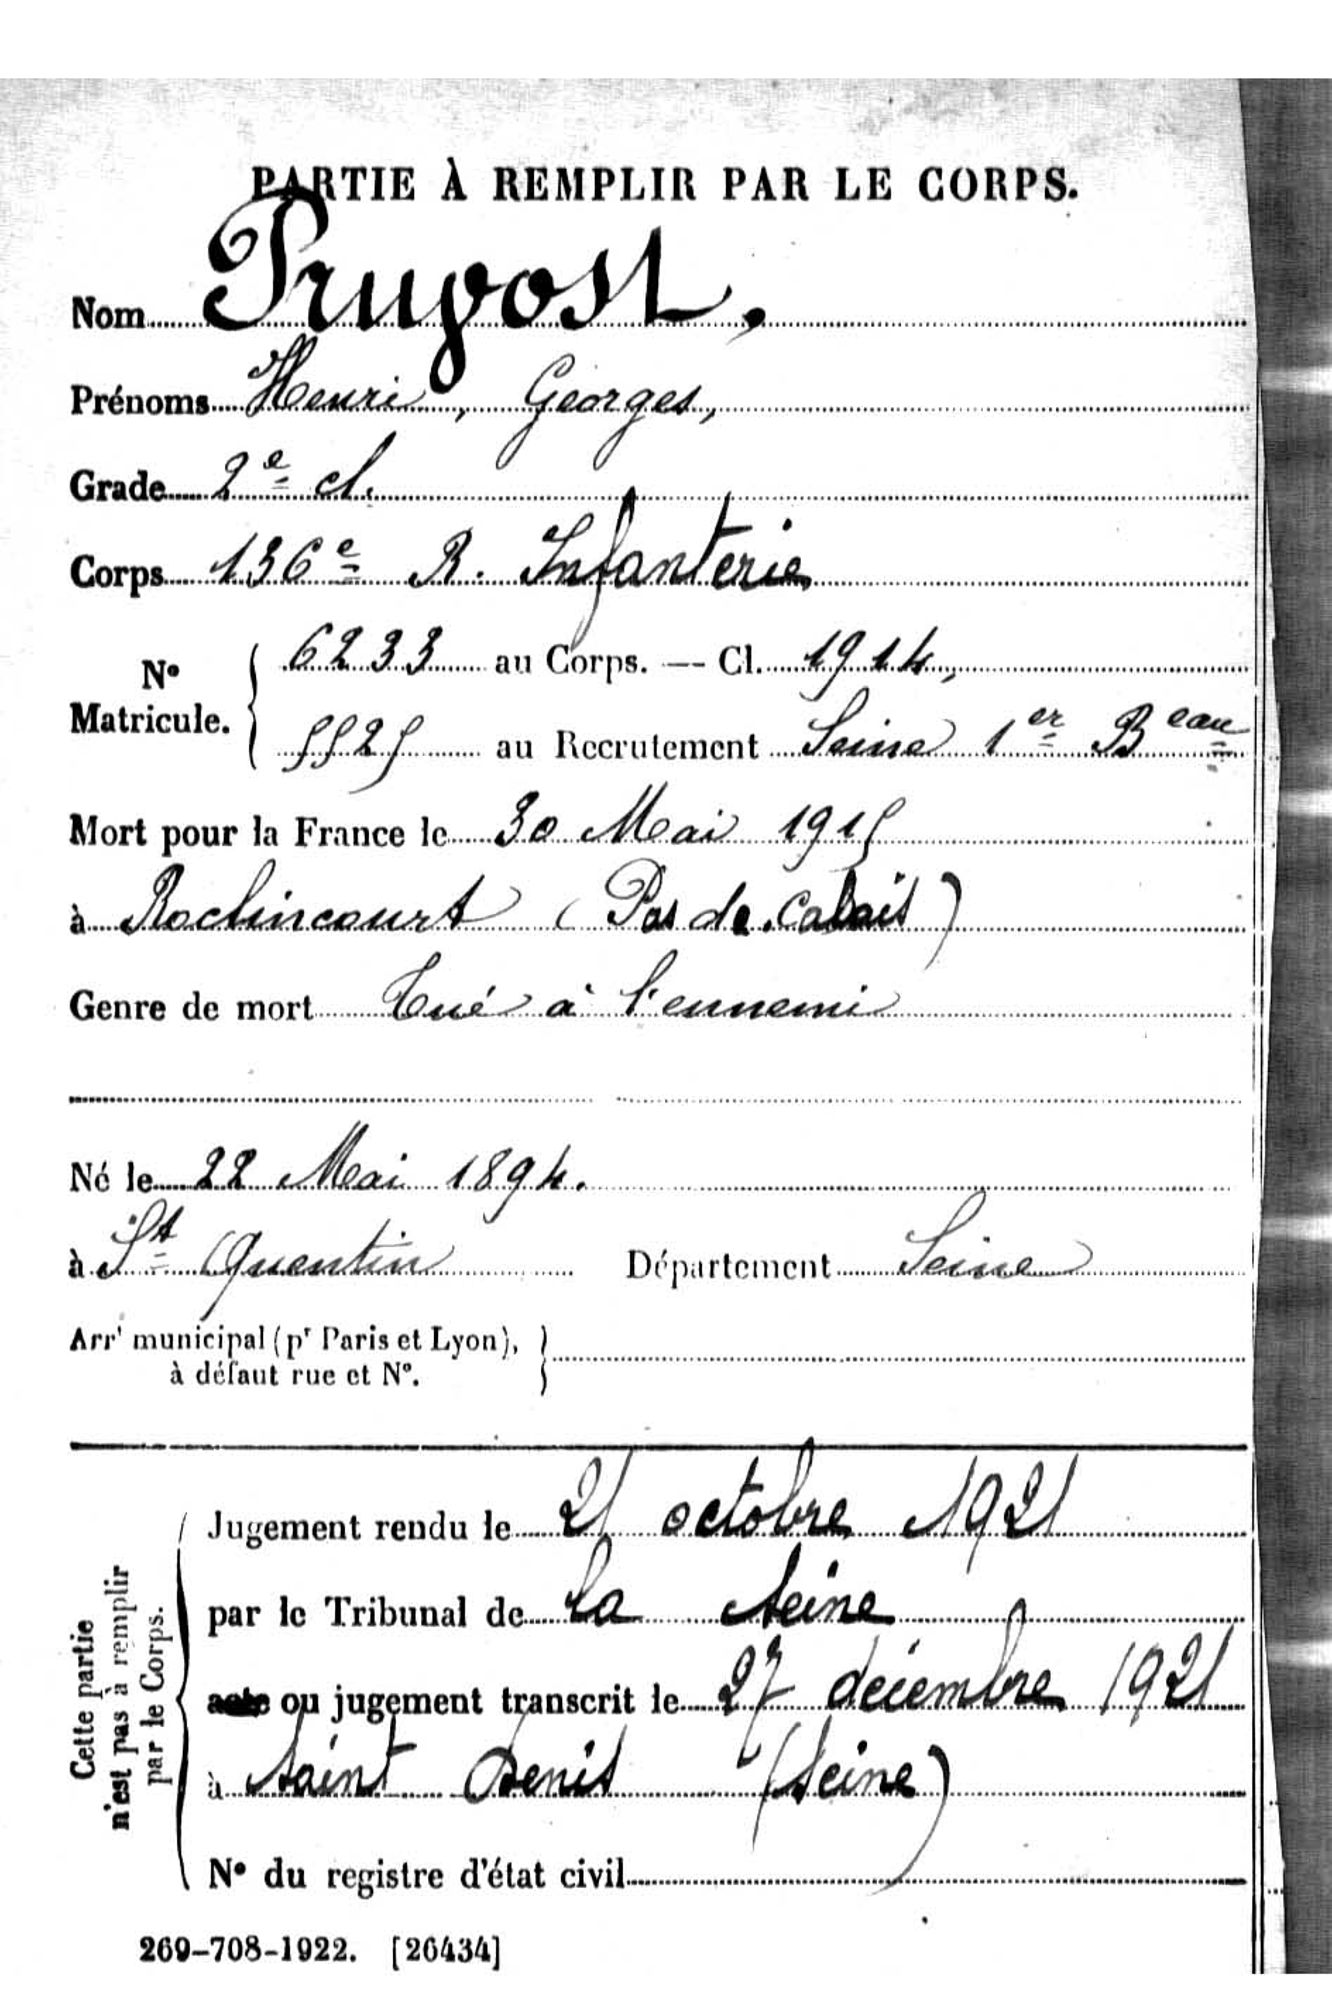 PARTIE À REMPLIR PAR LE CORPS.
Nom Pruvost.
Prénoms Henri, Georges,
Grade 2e cl.
Corps 136e R. Infanterie
No Matricule. 6233 au Corps. — Cl. 1914,
5525 au Recrutement Seine 1er Beau
Mort pour la France le 30 Mai 1915
à Roclincourt (Pas de Calais)
Genre de mort Tué à l'ennemi
Né le 22 Mai 1894.
à St Quentin Département Seine
Arrt municipal (pr Paris et Lyon),
à défaut rue et No.
Cette partie
n'est pas à remplir
par le Corps.
Jugement rendu le 21 octobre 1921
par le Tribunal de la Seine
acte ou jugement transcrit le 27 décembre 1921
à Saint Denis (Seine)
No du registre d'état civil
269-708-1922. [26434]